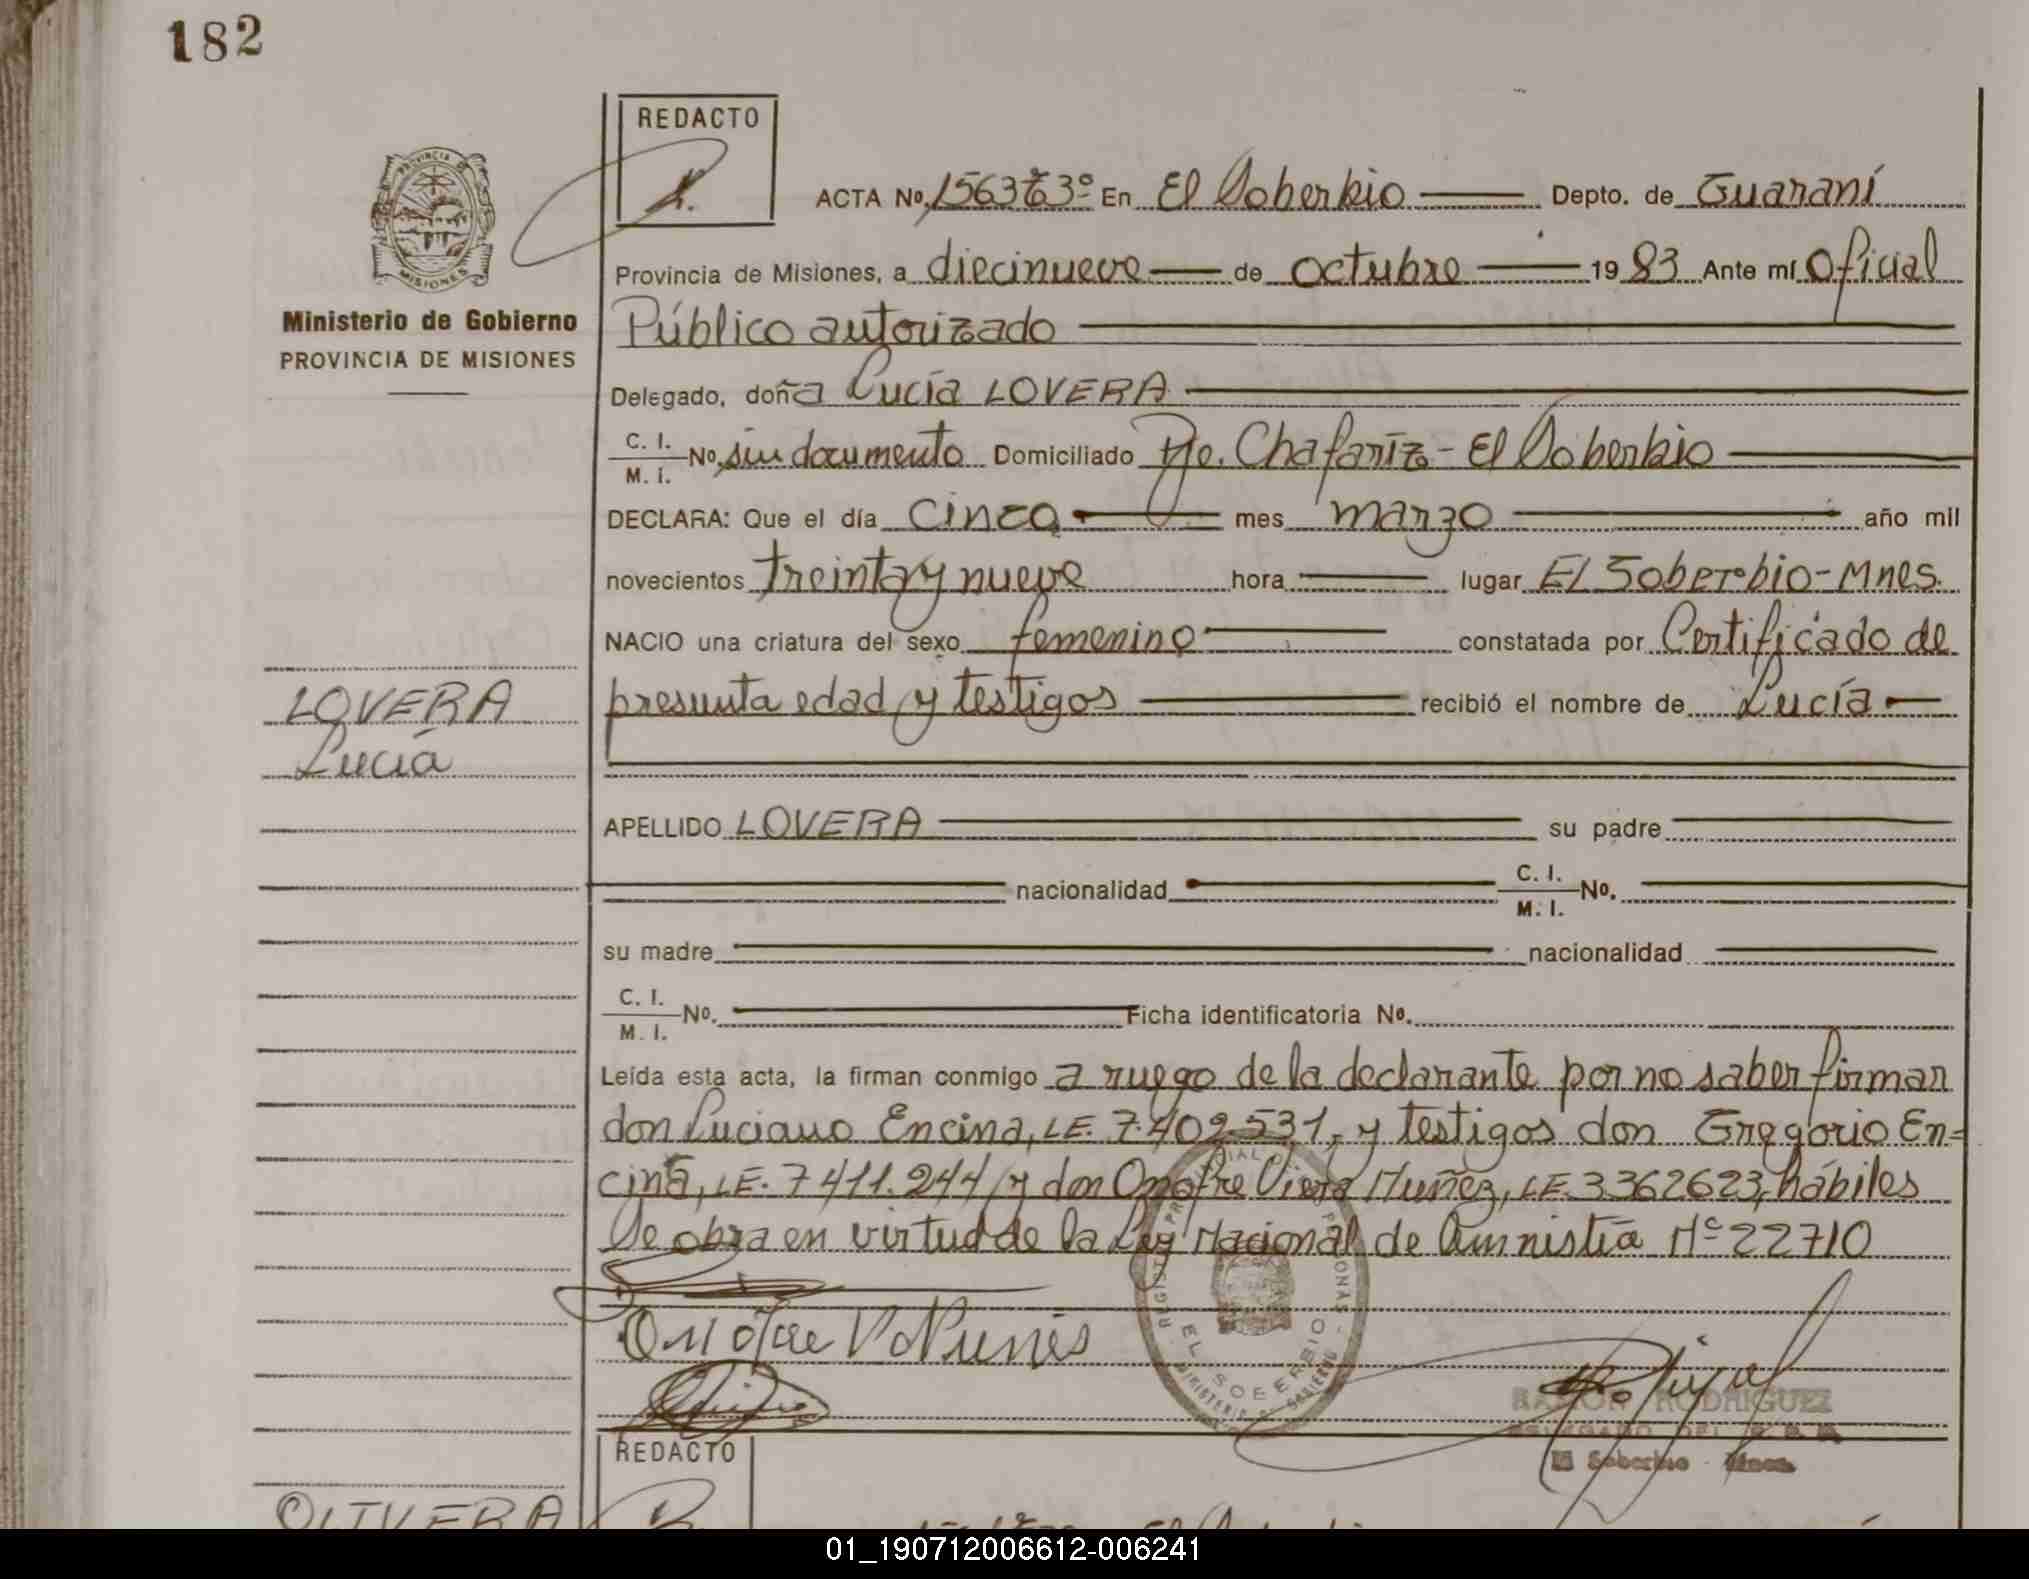 182
REDACTO
ACTA No. En El Soberbio Depto. de Guaraní
Provincia de Misiones, a diecinueve de octubre 19 83 Ante mí Oficial
Ministerio de Gobierno
PROVINCIA DE MISIONES
Público autorizado
Delegado, doña Lucía LOVERA
C. I.
M. I. No. sin documento Domiciliado Pje. Chafariz - El Soberbio
DECLARA: Que el día cinco mes marzo año mil
novecientos treinta y nueve hora lugar El Soberbio - Mnes.
NACIO una criatura del sexo femenino constatada por Certificado de
presunta edad y testigos recibió el nombre de Lucía
LOVERA
Lucía
APELLIDO LOVERA su padre
nacionalidad C. I.
M. I. No.
su madre nacionalidad
C. I.
M. I. No. Ficha identificatoria No.
Leída esta acta, la firman conmigo a ruego de la declarante por no saber firmar
don Luciano Encina, LE. 7.402.531, y testigos don Gregorio En-
cina, LE. 7411.244 y don Onofre Viera Muñez, LE. 3362623, hábiles
Se obra en virtud de la Ley Nacional de Amnistía Nº 22710
EL SOBERBIO
RAMON RODRIGUEZ
DELEGADO DEL
El Soberbio - Mnes.
REDACTO
OLIVERA
01_190712006612-006241